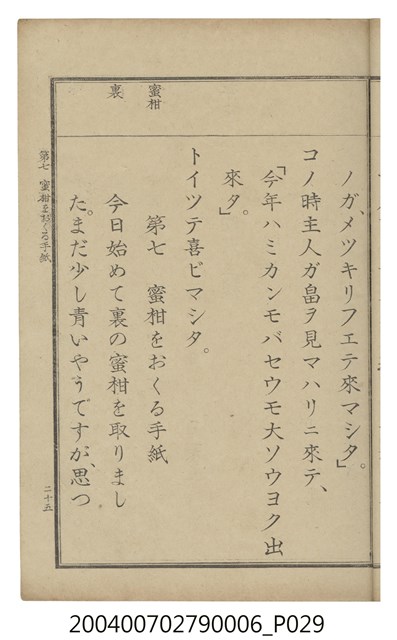 ノガ、メツキリフエテ來マシタ」。
コノ時主人ガ畠ヲ見マハリニ來テ、
「今年ハミカンモバセウモ大ソウヨク出
來タ。」
トイツテ喜ビマシタ。
第七 蜜柑をおくる手紙
今日始めて裏の蜜柑を取りまし
た。まだ少し青いやうですが、思つ
蜜柑
裏
第七 蜜柑をおくる手紙
二十五
200400702790006_P029